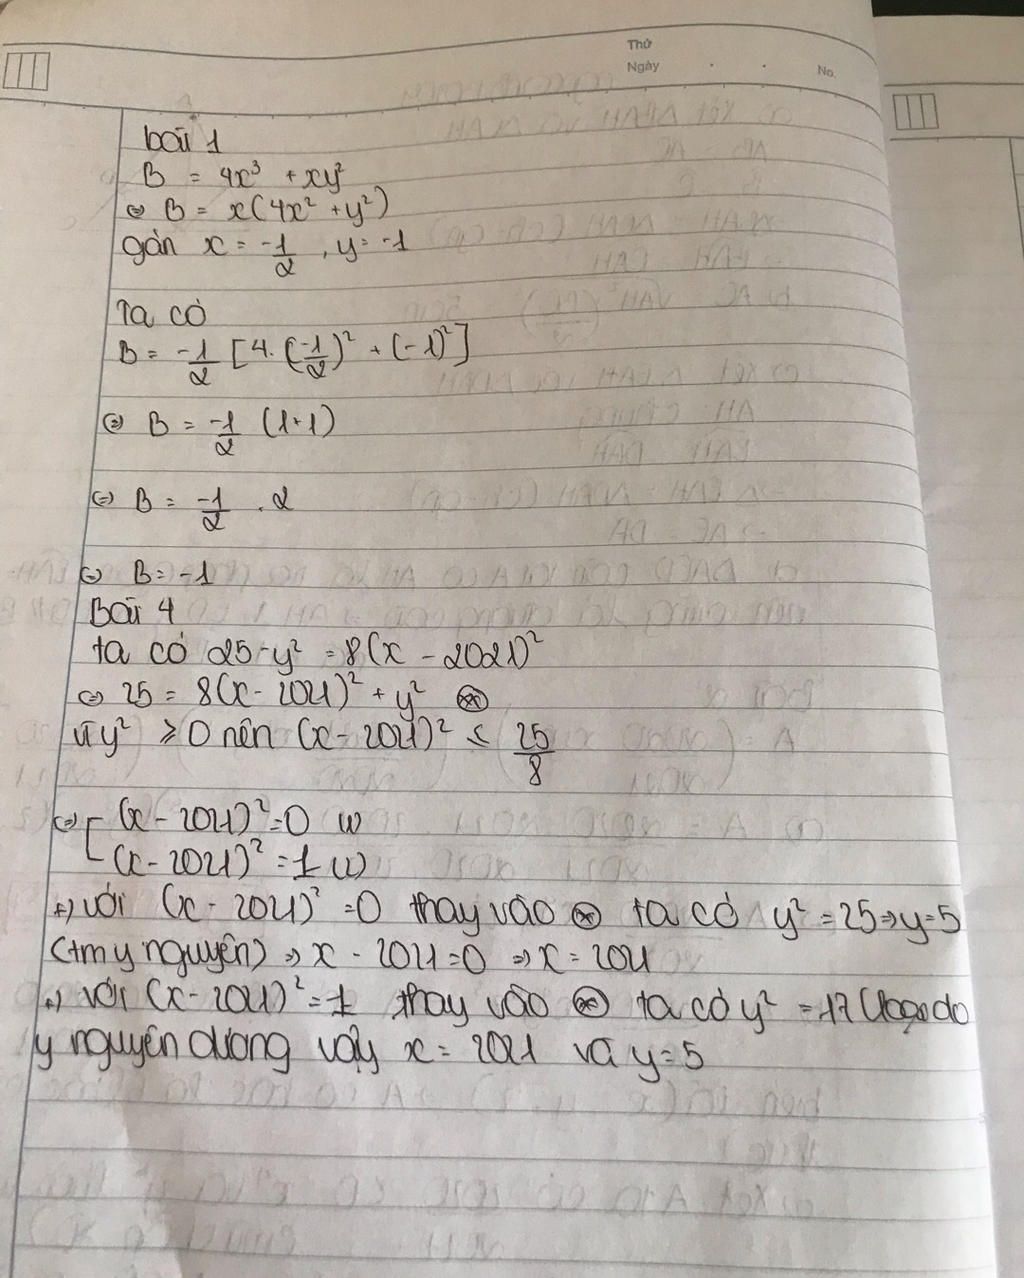 Thứ
Ngày . . No.
bài 1
B = 4x³ + xy²
⇔ B = x(4x² + y²)
gán x = -1/2 , y = -1
Ta có
B = -1/2 [4. (-1/2)² + (-1)²]
⇔ B = -1/2 (1+1)
⇔ B = -1/2 . 2
⇔ B = -1
Bài 4
ta có 25 - y² = 8(x - 2021)²
⇔ 25 = 8(x - 2021)² + y² (*)
vì y² ≥ 0 nên (x - 2021)² ≤ 25/8
⇔ [ (x - 2021)² = 0
(x - 2021)² = 1
+) với (x - 2021)² = 0 thay vào (*) ta có y² = 25 ⇒ y = 5
(tm y nguyên) ⇒ x - 2021 = 0 ⇒ x = 2021
+) với (x - 2021)² = 1 thay vào (*) ta có y² = 17 (loại do
y nguyên dương vậy x = 2021 và y = 5